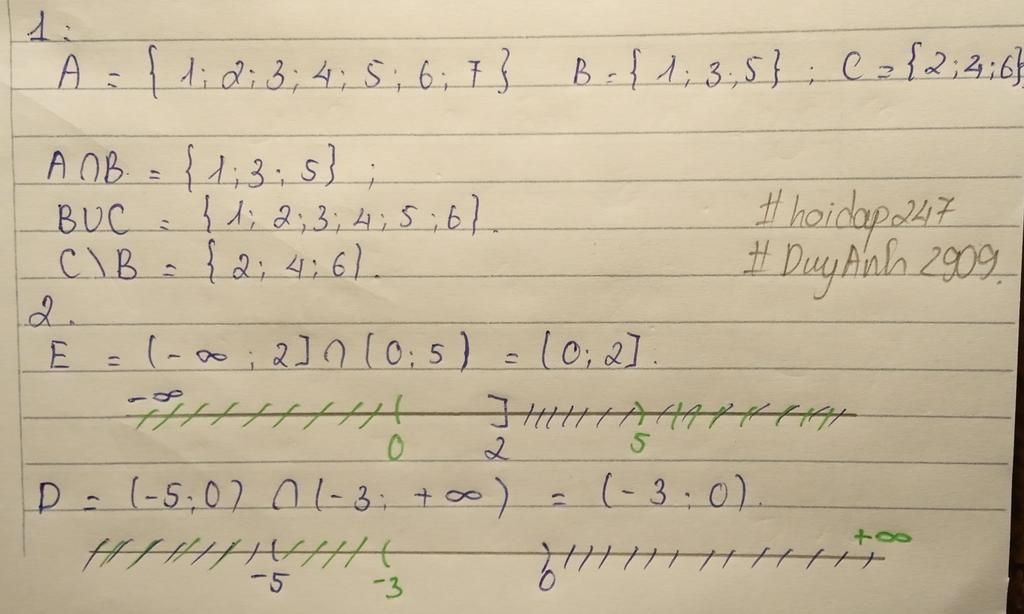 1:
A = { 1; 2; 3; 4; 5; 6; 7} B = { 1; 3; 5} ; C = {2; 4; 6}
A∩B = { 1; 3; 5} ;
B∪C = {1; 2; 3; 4; 5; 6}.
#hoidap247
C\B = {2; 4; 6}.
#DuyAnh2909.
2.
E = (-∞; 2] ∩ (0; 5) = (0; 2].
-∞ ( ] )
0 2 5
D = (-5; 0) ∩ (-3; +∞) = (-3; 0).
+∞
( ( )
-5 -3 0